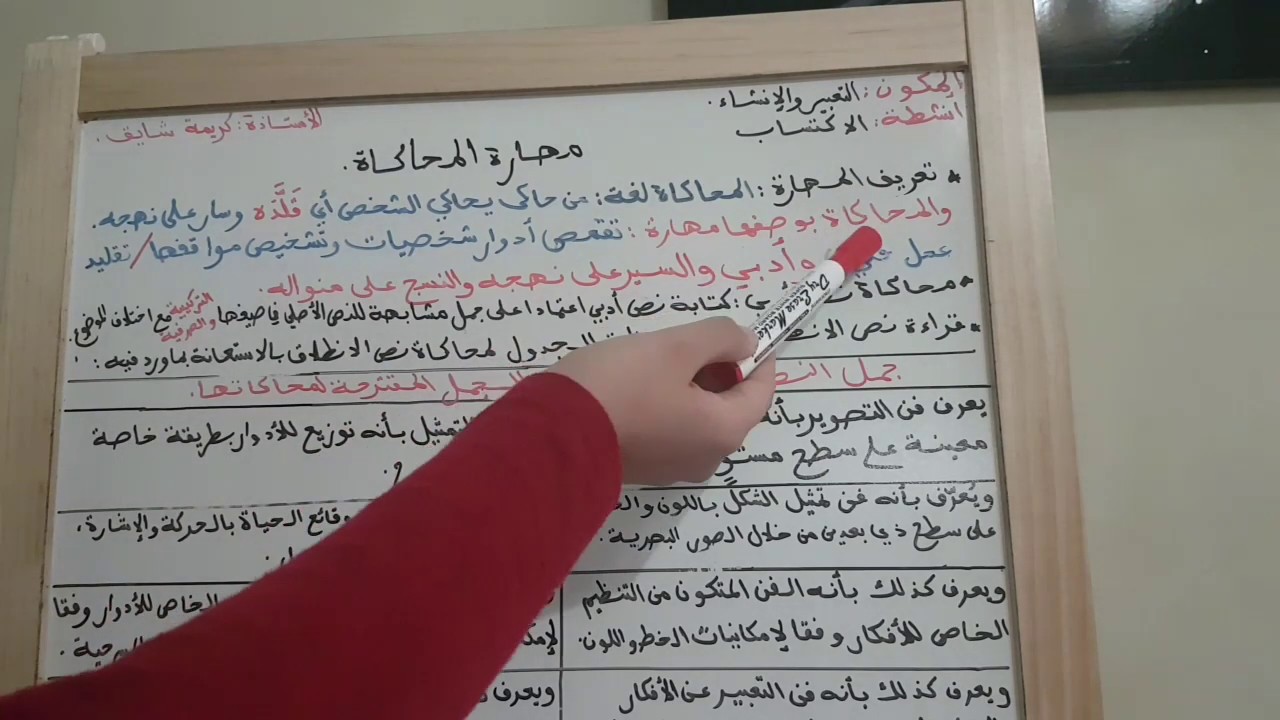 المكون: التعبير والإنشاء.
أنشطة: الاكتساب
الأستاذة: كريمة شايف.
مهارة المحاكاة.
* تعريف المهارة: المحاكاة لغة: من حاكى يحاكي الشخص أي قَلَّدَه وسار على نهجه.
والمحاكاة بوصفها مهارة: تقمص أدوار شخصيات وتشخيص مواقفها/تقليد
عمل وأدبي والسير على نهجه والنسج على منواله.
* محاكاة: كتابة نص أدبي اعتمادا على جمل مشابهة للنص الأصلي في صيغها التركيبية والصرفية مع اختلاف الموضوع.
* قراءة نص الجدول لمحاكاة نص الانطلاق بالاستعانة بما ورد فيه:
جمل الجمل المقترحة لمحاكاتها.
يعرف فن التصوير بأنه
معينة على سطح مستوٍ
بأنه توزيع للأدوار بطريقة خاصة
ويُعرّف بأنه فن تمثيل الشكل باللون
على سطح ذي بعدين من خلال الصور البصرية.
وقائع الحياة بالحركة والإشارة،
ويعرف كذلك بأنه الفن المتكون من التنظيم
الخاص للأفكار وفقا لإمكانيات الخط واللون.
الخاص للأدوار وفقا
ويعرف كذلك بأنه فن التعبير عن الأفكار
ويعرف
Dry Erase Marker